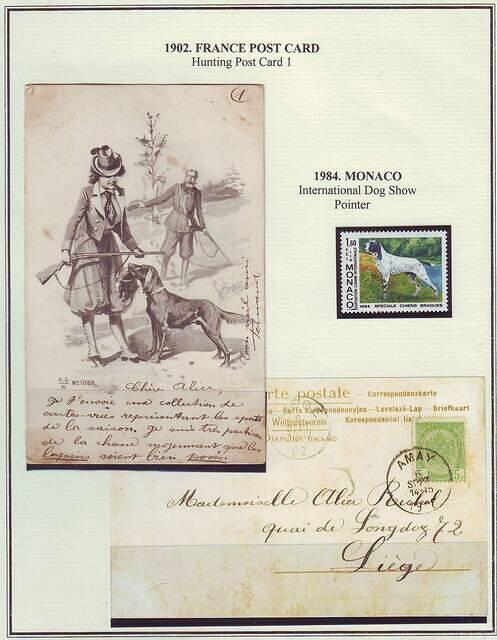 1902. FRANCE POST CARD
Hunting Post Card 1
1
1984. MONACO
International Dog Show
Pointer
1,60
MONACO
1984 SPECIALE CHIENS BRAQUES
Nº 1086.
Chère Alice,
Je t'envoie une collection de
cartes-vues représentant les sports
de la saison. Je suis très partisan
de la chasse moyennant que les
lapins soient bien posés.
Bon
rte postale
Correspondenzkarte
Karta Korrespondencyjna - Levelezö-Lap - Briefkaart
Weltpostverein
Korrespondenční lístek
02
AMAY
14-15
5
Mademoiselle Alice
quai de Longdoz 72
Liège